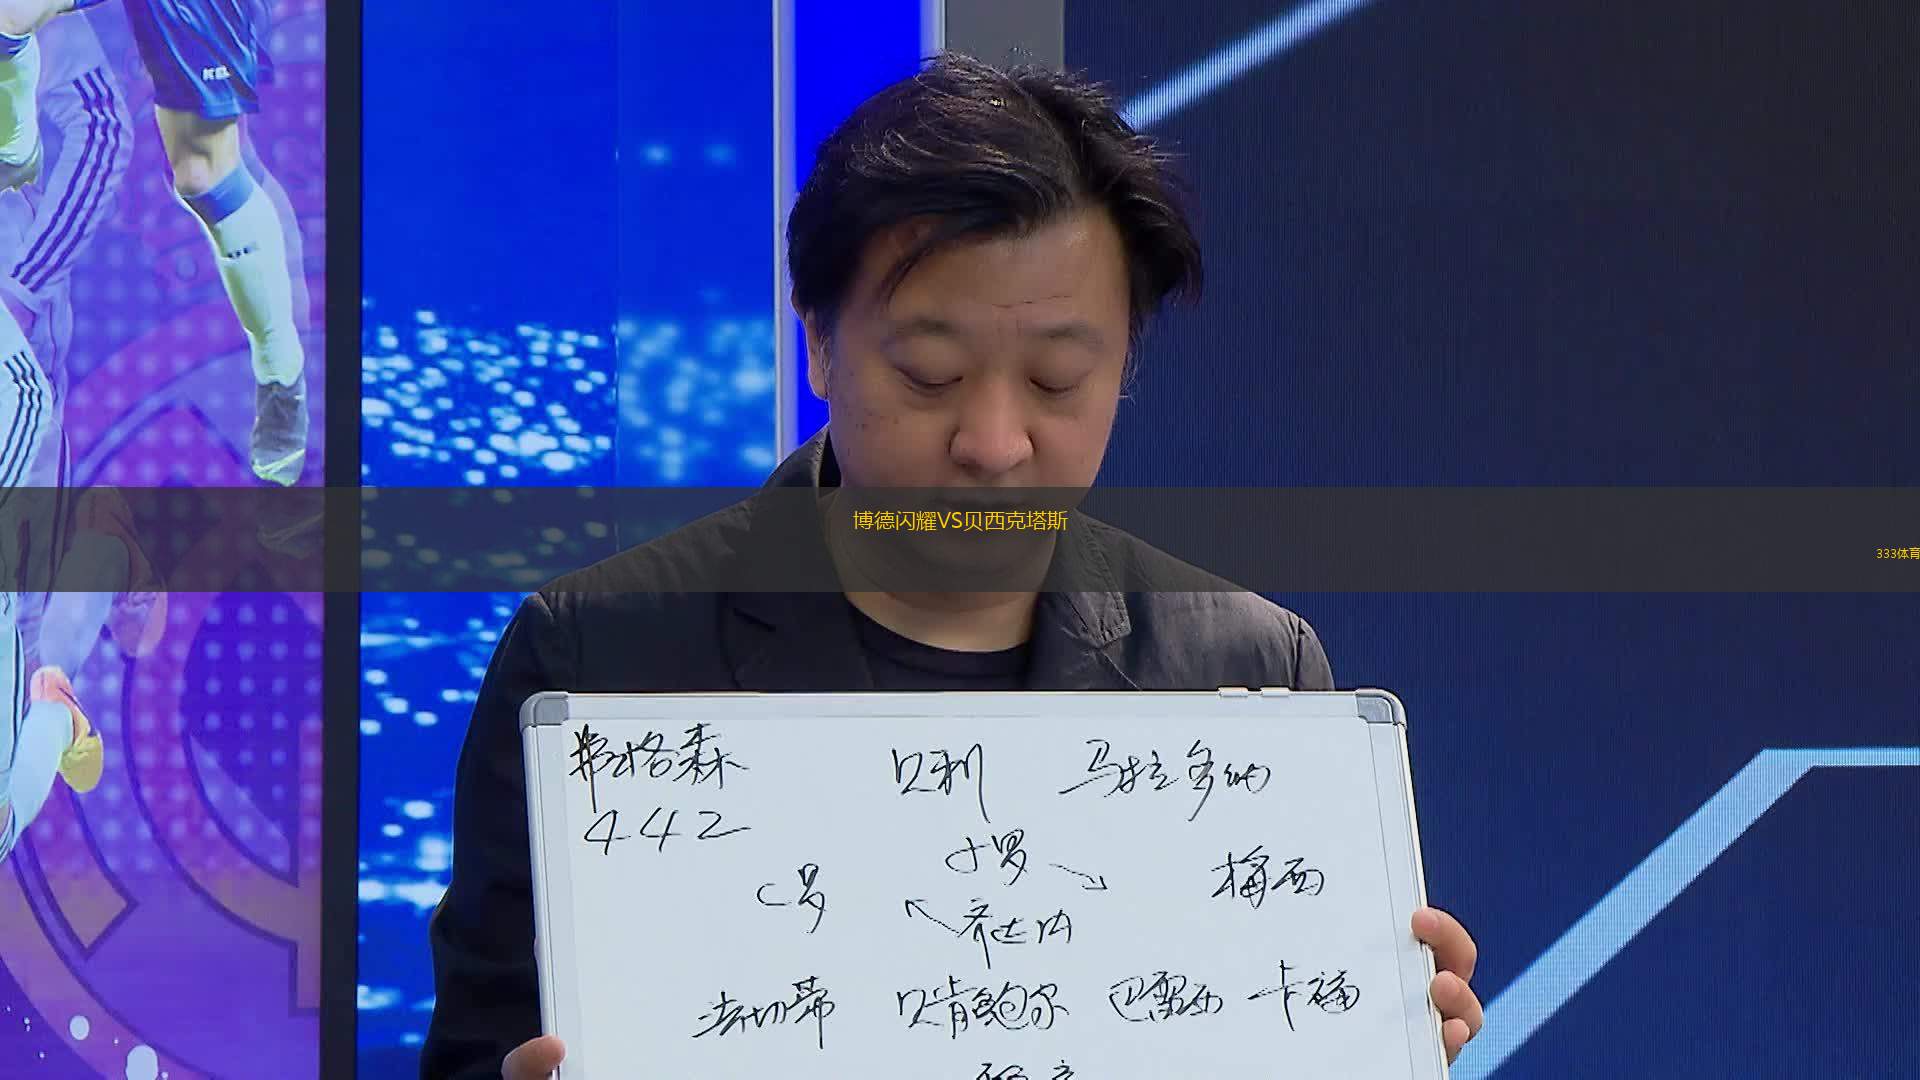 博德闪耀VS贝西克塔斯
333体育
弗格森 贝利 马拉多纳
442
小罗
C罗 梅西
齐达内
法切蒂 贝肯鲍尔 巴雷西 卡福